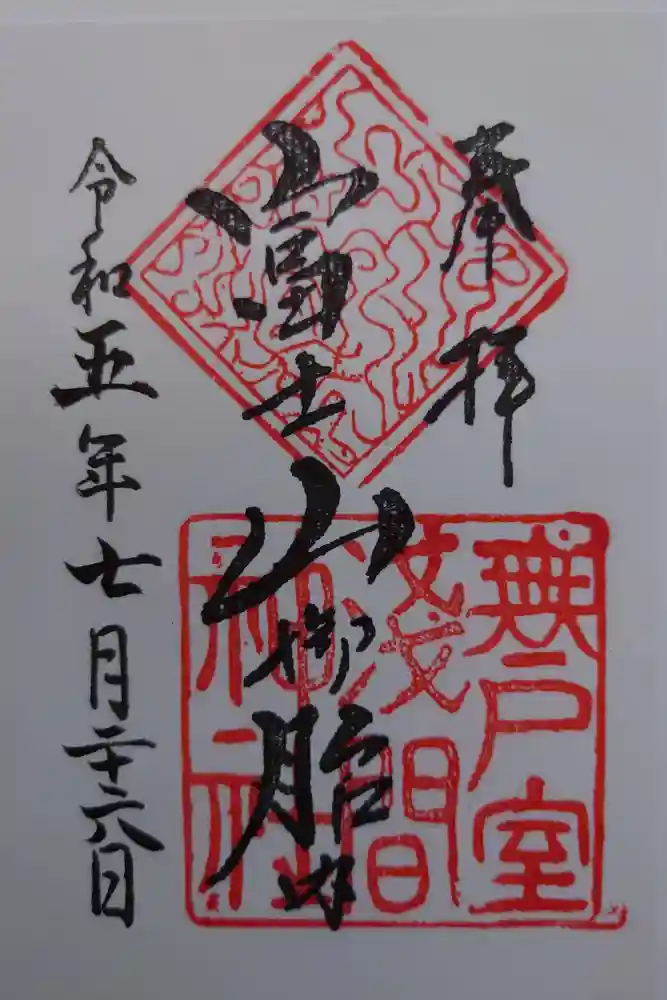 奉拝
富士山御胎内
令和五年七月二十六日
無戸室
淺間
神社